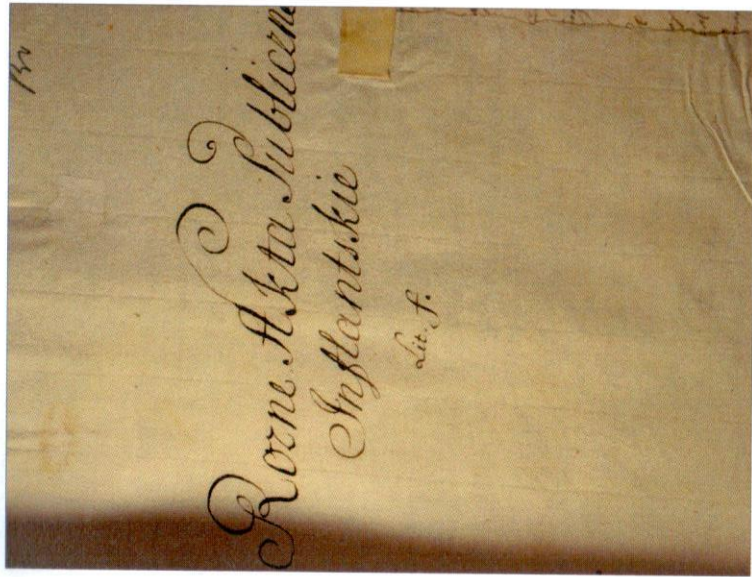 Rozne Akta Publiczne
Inflantskie
Lit. f.